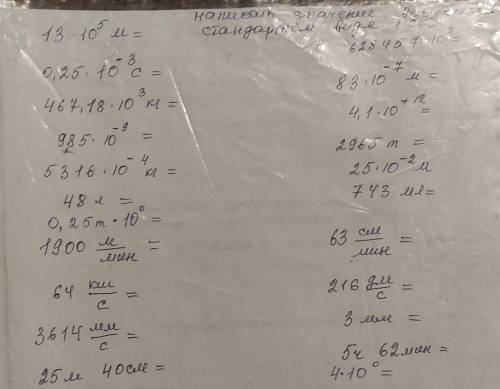 написать значение
стандартном виде
13 · 10⁵ м =
0,25 · 10⁻³ с =
467,18 · 10³ кг =
985 · 10⁻⁹ =
5316 · 10⁻⁴ кг =
48 л =
0,25 т · 10⁰ =
1900 м/мин =
64 км/с =
3614 мм/с =
25 м 40 см =
62845 7 · 10²
83 · 10⁻⁷ м =
4,1 · 10⁺¹² =
2965 т =
25 · 10⁻² м
743 мл =
63 см/мин =
216 дм/с =
3 мм =
5ч 62 мин =
4 · 10⁰ =